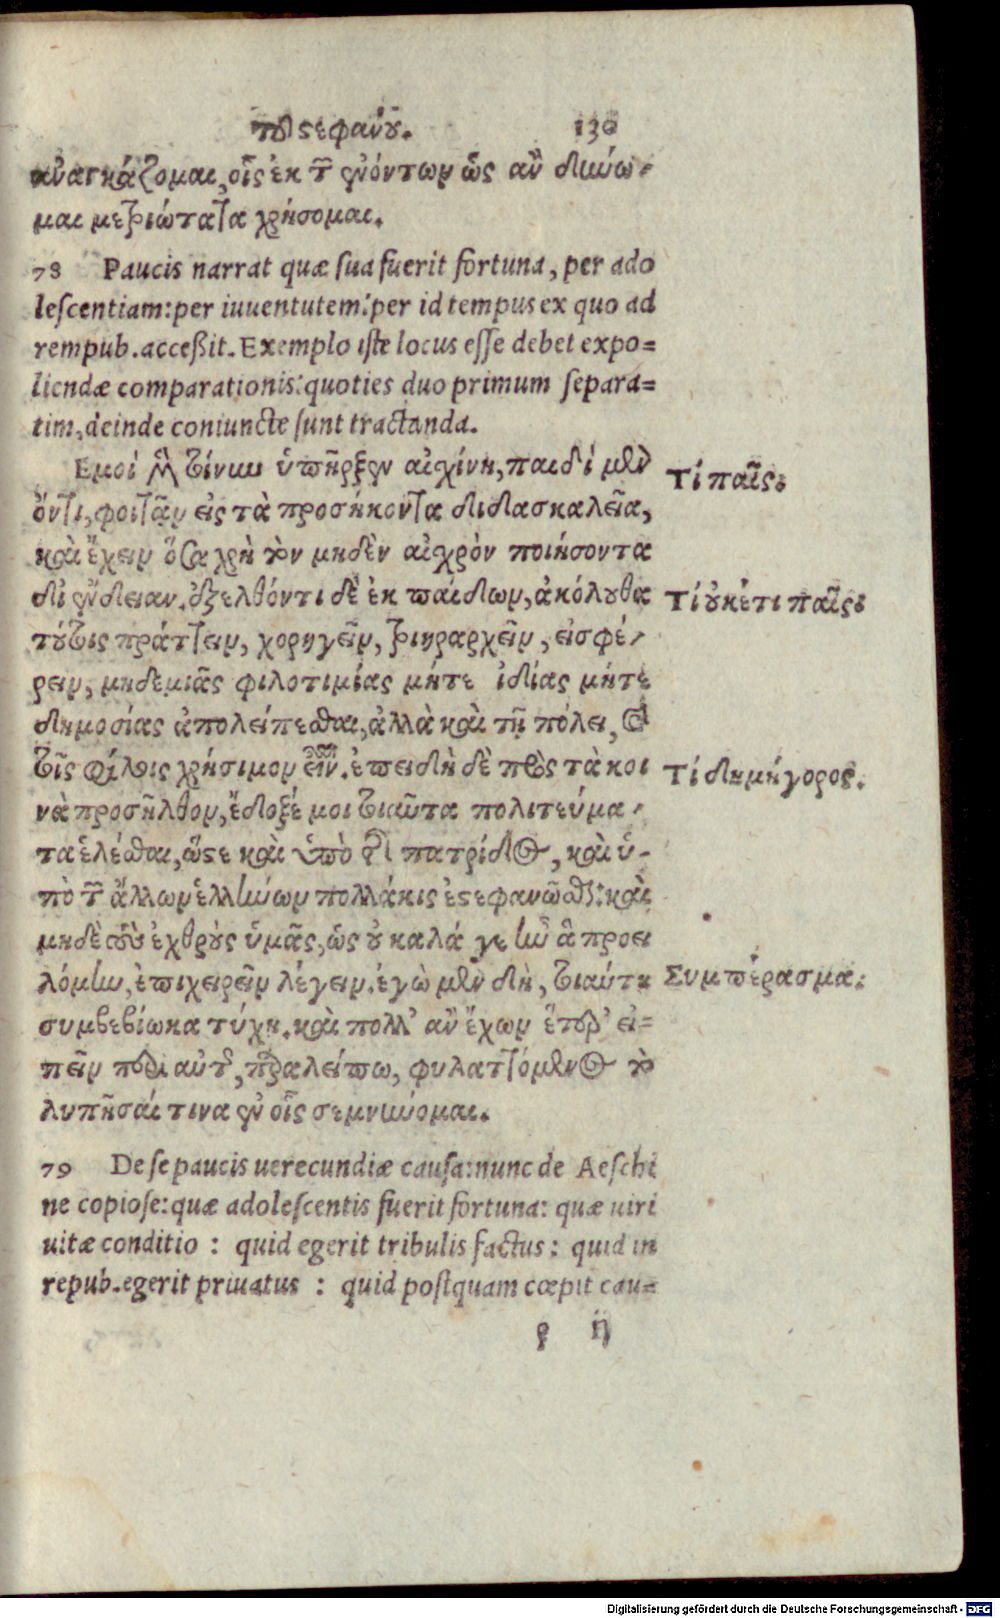 τοῦ στεφάνου. 130
ἀναγκάζομαι, οἷς ἐκ τῶν ἐνόντων ὡς ἂν δύνω-
μαι μετριώτατα χρήσομαι.
78 Paucis narrat quæ sua fuerit fortuna, per ado
lescentiam: per iuuentutem: per id tempus ex quo ad
rempub. accessit. Exemplo iste locus esse debet expo=
liendæ comparationis: quoties duo primum separa=
tim, deinde coniuncte sunt tractanda.
Εμοὶ μὲν τοίνυν ὑπῆρξεν αἰσχίνη, παιδὶ μὲν
Τί παῖς;
ὄντι, φοιτᾶν εἰς τὰ προσήκοντα διδασκαλεῖα,
καὶ ἔχειν ὅσα χρὴ τὸν μηδὲν αἰσχρὸν ποιήσοντα
δι' ἔνδειαν. ἐξελθόντι δὲ ἐκ παίδων, ἀκόλουθα
Τί οὐκέτι παῖς;
τούτοις πράττειν, χορηγεῖν, τριηραρχεῖν, εἰσφέ-
ρειν, μηδεμιᾶς φιλοτιμίας μήτε ἰδίας μήτε
δημοσίας ἀπολείπεσθαι, ἀλλὰ καὶ τῇ πόλει, καὶ
τοῖς φίλοις χρήσιμον εἶναι. ἐπειδὴ δὲ πρὸς τὰ κοι
Τί δημήγορος.
νὰ προσῆλθον, ἔδοξέ μοι τοιαῦτα πολιτεύμα-
τα ἑλέσθαι, ὥστε καὶ ὑπὸ τῆς πατρίδος, καὶ ὑ-
πὸ τῶν ἄλλων ἑλλήνων πολλάκις ἐστεφανῶσθαι: καὶ
μηδὲ τοὺς ἐχθροὺς ὑμᾶς, ὡς οὐ καλά γε ἦν ἃ προει
λόμην, ἐπιχειρεῖν λέγειν. ἐγὼ μὲν δὴ, τοιαύτῃ
Συμπέρασμα.
συμβεβίωκα τύχῃ. καὶ πολλ' ἂν ἔχων ἕτερ' εἰ=
πεῖν περὶ αὐτῆς, παραλείπω, φυλαττόμενος τὸ
λυπῆσαί τινα ἐν οἷς σεμνύνομαι.
79 De se paucis uerecundiæ causa: nunc de Aeschi
ne copiose: quæ adolescentis fuerit fortuna: quæ uiri
uitæ conditio : quid egerit tribulis factus: quid in
repub. egerit priuatus : quid postquam cœpit cau=
ρ ij
Digitalisierung gefördert durch die Deutsche Forschungsgemeinschaft - DFG